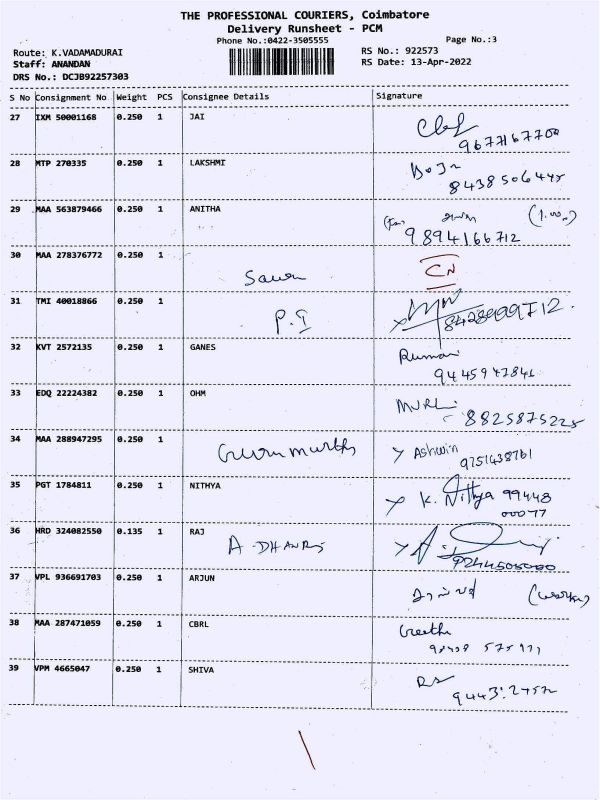 THE PROFESSIONAL COURIERS, Coimbatore
Delivery Runsheet - PCM
Phone No.:0422-3505555
Page No.:3
Route: K.VADAMADURAI
RS No.: 922573
Staff: ANANDAN
RS Date: 13-Apr-2022
DRS No.: DCJB92257303
S No Consignment No Weight PCS Consignee Details Signature
27 IXM 50001168 0.250 1 JAI
9677167700
28 MTP 270335 0.250 1 LAKSHMI
8438506445
29 MAA 563879466 0.250 1 ANITHA
9894166712
30 MAA 278376772 0.250 1 CN
31 TMI 40018866 0.250 1 P.I
32 KVT 2572135 0.250 1 GANES Kumar
9445947841
33 EDQ 22224382 0.250 1 OHM MURLi
8825875225
34 MAA 288947295 0.250 1 Gurumurthy Ashwin
9751438761
35 PGT 1784811 0.250 1 NITHYA K. Nithya 99448
00077
36 HRD 324082550 0.135 1 RAJ
A-DHANRJ
37 VPL 936691703 0.250 1 ARJUN (worker)
38 MAA 287471059 0.250 1 CBRL Geetha
39 VPM 4665047 0.250 1 SHIVA RS